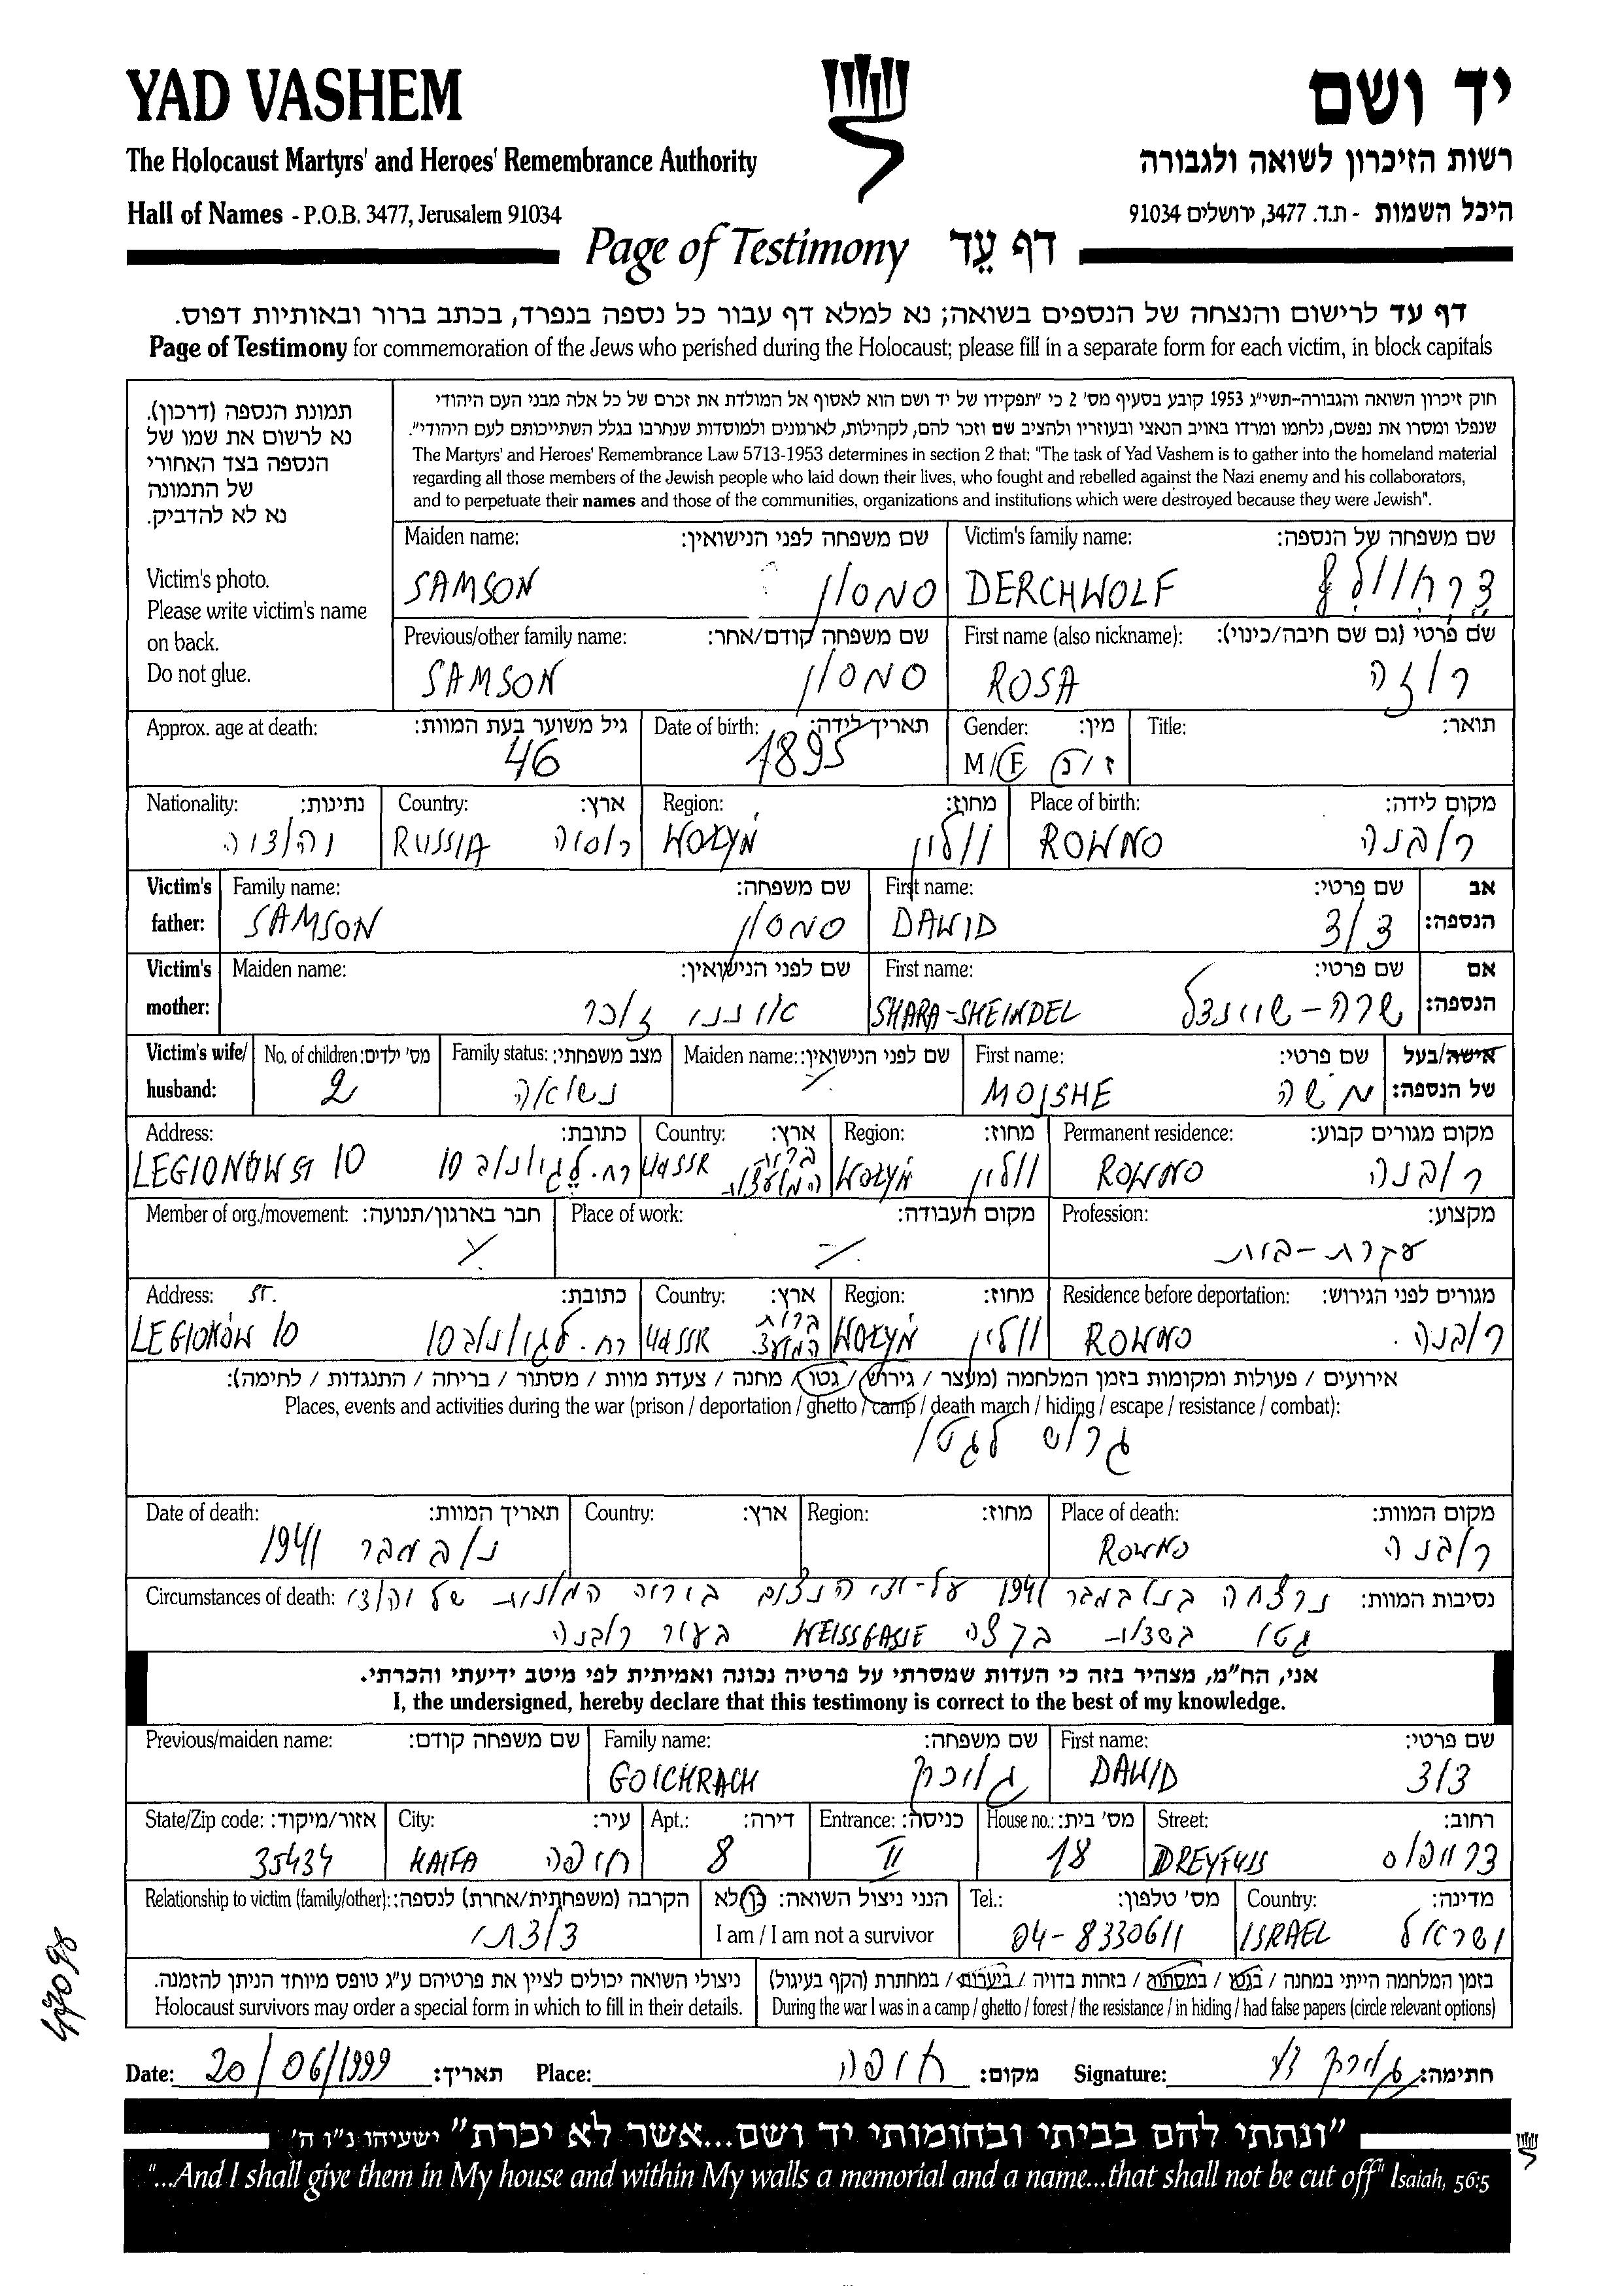 YAD VASHEM יד ושם
The Holocaust Martyrs' and Heroes' Remembrance Authority רשות הזיכרון לשואה ולגבורה
Hall of Names - P.O.B. 3477, Jerusalem 91034 היכל השמות - ת.ד. 3477, ירושלים 91034
Page of Testimony דף עֵד
דף עד לרישום והנצחה של הנספים בשואה; נא למלא דף עבור כל נספה בנפרד, בכתב ברור ובאותיות דפוס.
Page of Testimony for commemoration of the Jews who perished during the Holocaust; please fill in a separate form for each victim, in block capitals
תמונת הנספה (דרכון).
נא לרשום את שמו של
הנספה בצד האחורי
של התמונה
נא לא להדביק.
Victim's photo.
Please write victim's name
on back.
Do not glue.
חוק זיכרון השואה והגבורה-תשי"ג 1953 קובע בסעיף מס' 2 כי "תפקידו של יד ושם הוא לאסוף אל המולדת את זכרם של כל אלה מבני העם היהודי
שנפלו ומסרו את נפשם, נלחמו ומרדו באויב הנאצי ובעוזריו ולהציב שם וזכר להם, לקהילות, לארגונים ולמוסדות שנחרבו בגלל השתייכותם לעם היהודי".
The Martyrs' and Heroes' Remembrance Law 5713-1953 determines in section 2 that: "The task of Yad Vashem is to gather into the homeland material
regarding all those members of the Jewish people who laid down their lives, who fought and rebelled against the Nazi enemy and his collaborators,
and to perpetuate their names and those of the communities, organizations and institutions which were destroyed because they were Jewish".
Maiden name: שם משפחה לפני הנישואין: Victim's family name: שם משפחה של הנספה:
SAMSON סמסון DERCHWOLF דרחוולף
Previous/other family name: שם משפחה קודם/אחר: First name (also nickname): שם פרטי (גם שם חיבה/כינוי):
SAMSON סמסון ROSA רוזה
Approx. age at death: גיל משוער בעת המוות: Date of birth: תאריך לידה: Gender: מין: Title: תואר:
46 1895 M/F ז/נ
Nationality: נתינות: Country: ארץ: Region: מחוז: Place of birth: מקום לידה:
יהודיה RUSSIA רוסיה WOŁYŃ ווולין ROWNO רובנה
Victim's father: Family name: שם משפחה: First name: שם פרטי: אב הנספה:
SAMSON סמסון DAWID דוד
Victim's mother: Maiden name: שם לפני הנישואין: First name: שם פרטי: אם הנספה:
אינני זוכר SHARA-SHEINDEL שרה-שיינדל
Victim's wife/ husband: No. of children: מס' ילדים: Family status: מצב משפחתי: Maiden name: שם לפני הנישואין: First name: שם פרטי: אישה/בעל של הנספה:
2 נשואה MOJSHE משה
Address: כתובת: Country: ארץ: Region: מחוז: Permanent residence: מקום מגורים קבוע:
LEGIONOW ST 10 רח. לגיונוב 10 USSR ברית המועצות WOŁYŃ ווולין ROWNO רובנה
Member of org./movement: חבר בארגון/תנועה: Place of work: מקום העבודה: Profession: מקצוע:
עקרת-בית
Address: כתובת: Country: ארץ: Region: מחוז: Residence before deportation: מגורים לפני הגירוש:
ST. LEGIONÓW 10 רח. לגיונוב 10 USSR ברית המועצ. WOŁYŃ ווולין ROWNO רובנה.
אירועים / פעולות ומקומות בזמן המלחמה (מעצר / גירוש / גטו / מחנה / צעדת מוות / מסתור / בריחה / התנגדות / לחימה):
Places, events and activities during the war (prison / deportation / ghetto / camp / death march / hiding / escape / resistance / combat):
גרוש לגטו
Date of death: תאריך המוות: Country: ארץ: Region: מחוז: Place of death: מקום המוות:
נובמבר 1941 ROWNO רובנה
Circumstances of death: נסיבות המוות: נרצחה בנובמבר 1941 על-ידי הנצים בירוה המונית של יהודי
גטו בשדות בקצה WEISSGASIE בעיר רובנה
אני, הח"מ, מצהיר בזה כי העדות שמסרתי על פרטיה נכונה ואמיתית לפי מיטב ידיעתי והכרתי.
I, the undersigned, hereby declare that this testimony is correct to the best of my knowledge.
Previous/maiden name: שם משפחה קודם: Family name: שם משפחה: First name: שם פרטי:
GOICHRACH DAWID דוד
State/Zip code: אזור/מיקוד: City: עיר: Apt.: דירה: Entrance: כניסה: House no.: מס' בית: Street: רחוב:
35434 HAIFA חיפה 8 II 18 DREYFUS דרייפוס
Relationship to victim (family/other): הקרבה (משפחתית/אחרת) לנספה: הנני ניצול השואה: כן/לא Tel.: מס' טלפון: Country: מדינה:
דודתי I am / I am not a survivor 04-8330611 ISRAEL ישראל
ניצולי השואה יכולים לציין את פרטיהם ע"ג טופס מיוחד הניתן להזמנה. בזמן המלחמה הייתי במחנה / בגטו / במסתור / בזהות בדויה / ביערות / במחתרת (הקף בעיגול)
Holocaust survivors may order a special form in which to fill in their details. During the war I was in a camp / ghetto / forest / the resistance / in hiding / had false papers (circle relevant options)
Date: 20/06/1999 תאריך: Place: חיפה מקום: Signature: חתימה:
"ונתתי להם בביתי ובחומותי יד ושם...אשר לא יכרת" ישעיהו נ"ו ה'
"...And I shall give them in My house and within My walls a memorial and a name...that shall not be cut off" Isaiah, 56:5